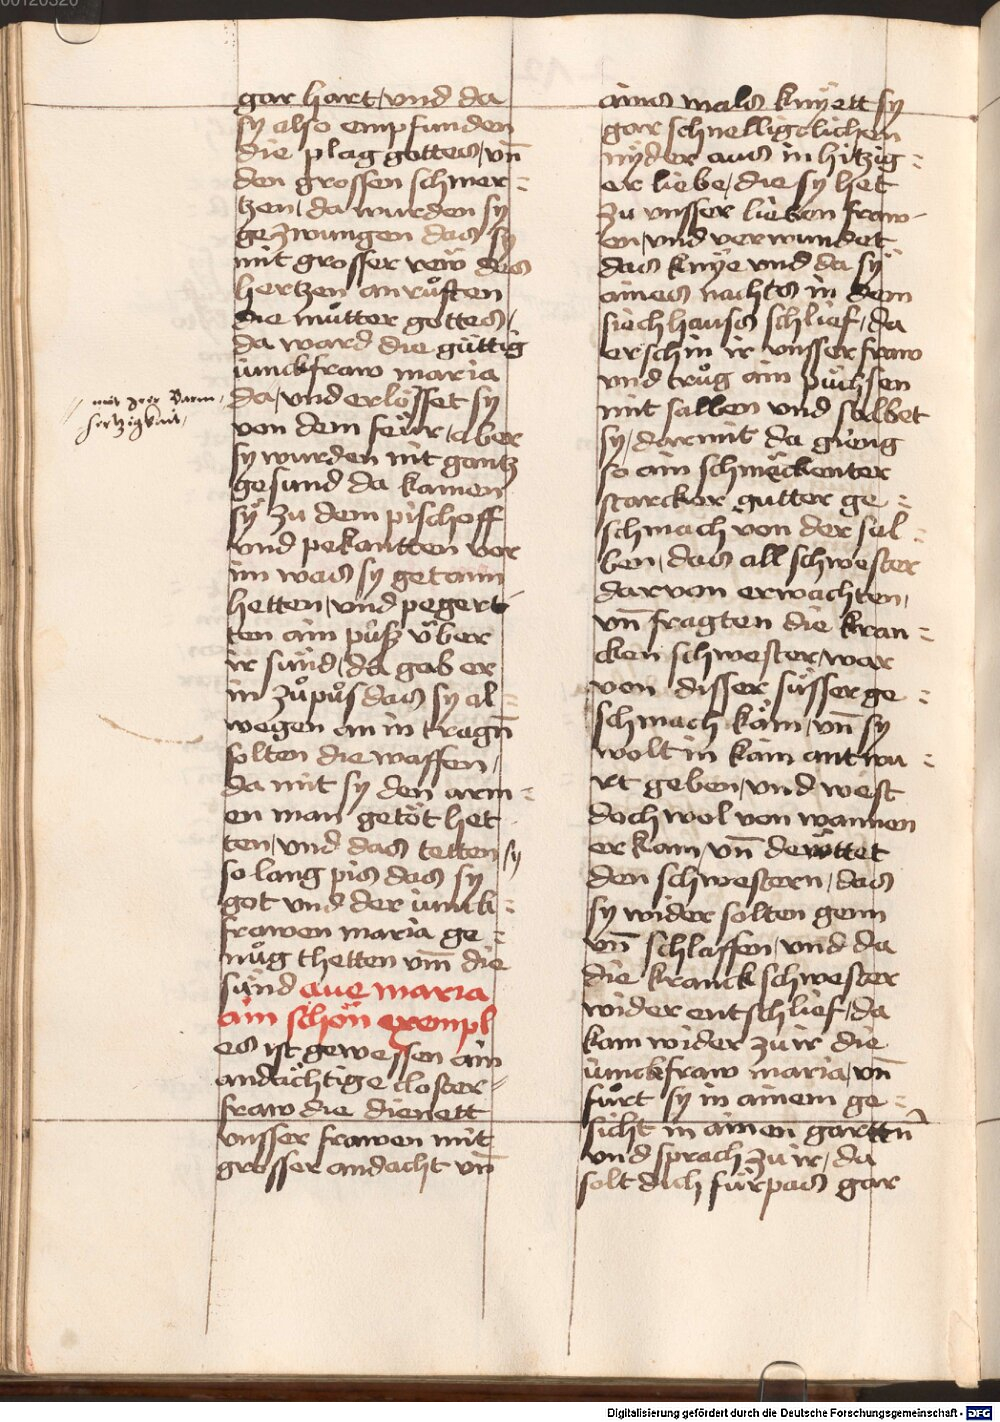 gar hart / vnd da
sy also empfunden
die plag gottes / vn̄
den grossen schmer=
tzen / da wurden sy
gezwungen das sy
mit grosser rew des
hertzen anrůften
die můtter gottes /
da ward die güttig
iunckfraw maria
da / vnd erlösset sy
mit irer Barm
hertzigkait /
von dem feür / aber
sy wurden nit gantz
gesund da kamen
sÿ zu dem pischoff
vnd pekantten vor
im was sy getann
hetten / vnd pegert
ten ain půsz über
ir sünd / da gab er
in zů půs das sy al=
wegen an in tragn̄
solten die waffen /
da mit sy den arm=
en man getöt het
ten / vnd das tetten sy
so lang pis das sy
got vnd der iunck=
frawen maria ge=
nůg thetten vm̄ die
sünd aue maria
ain schön exempl
es ist gewessen ain
andächtige closter=
fraw die dienett
vnsser frawen mit
grosser andacht vn̄
ains mals knÿett sy
gar schnelligclichen
nÿder aus in hitzig=
er liebe / die sy het
zu vnsser lieben fraw-
en / vnd verwundet
das knÿe vnd da sÿ
aines nachts in dem
siechhauss schlief / da
erschin ir vnsser fraw
vnd trůg ain püchsen
mit salben vnd salbet
sy / darmit da gieng
so ain schmeckenter
starcker gutter ge=
schmach von der sal=
ben / das all schwester
darvon erwachten /
vn̄ fragten die kran=
cken schwester / war
von disser süsser ge=
schmach käm / vn̄ sy
wolt in kain antwu=
rt geben / vnd west
doch wol von wannen
er kam / vn̄ deẅttet
den schwestern / das
sy wider solten genn
vn̄ schlaffen / vnd da
die kranck schwester
wider entschlief / da
kam wider zu ir die
iunckfraw maria / vn̄
fůrt sy in ainem ge=
sicht in ainen garttn̄
vnd sprach zu ir / da
solt dich fürpas gar
Digitalisierung gefördert durch die Deutsche Forschungsgemeinschaft - DFG